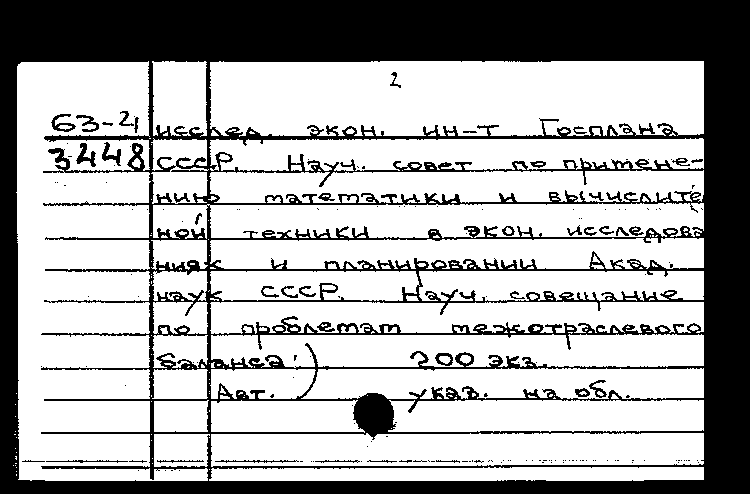 2
63-4 исслед. экон. ин-т Госплана
3448 СССР. Науч. совет по примене-
нию математики и вычислите
ной техники в экон. исследова
ниях и планировании Акад.
наук СССР. Науч. совещание
по проблемам межотраслевого
баланса.) 200 экз.
Авт. указ. на обл.